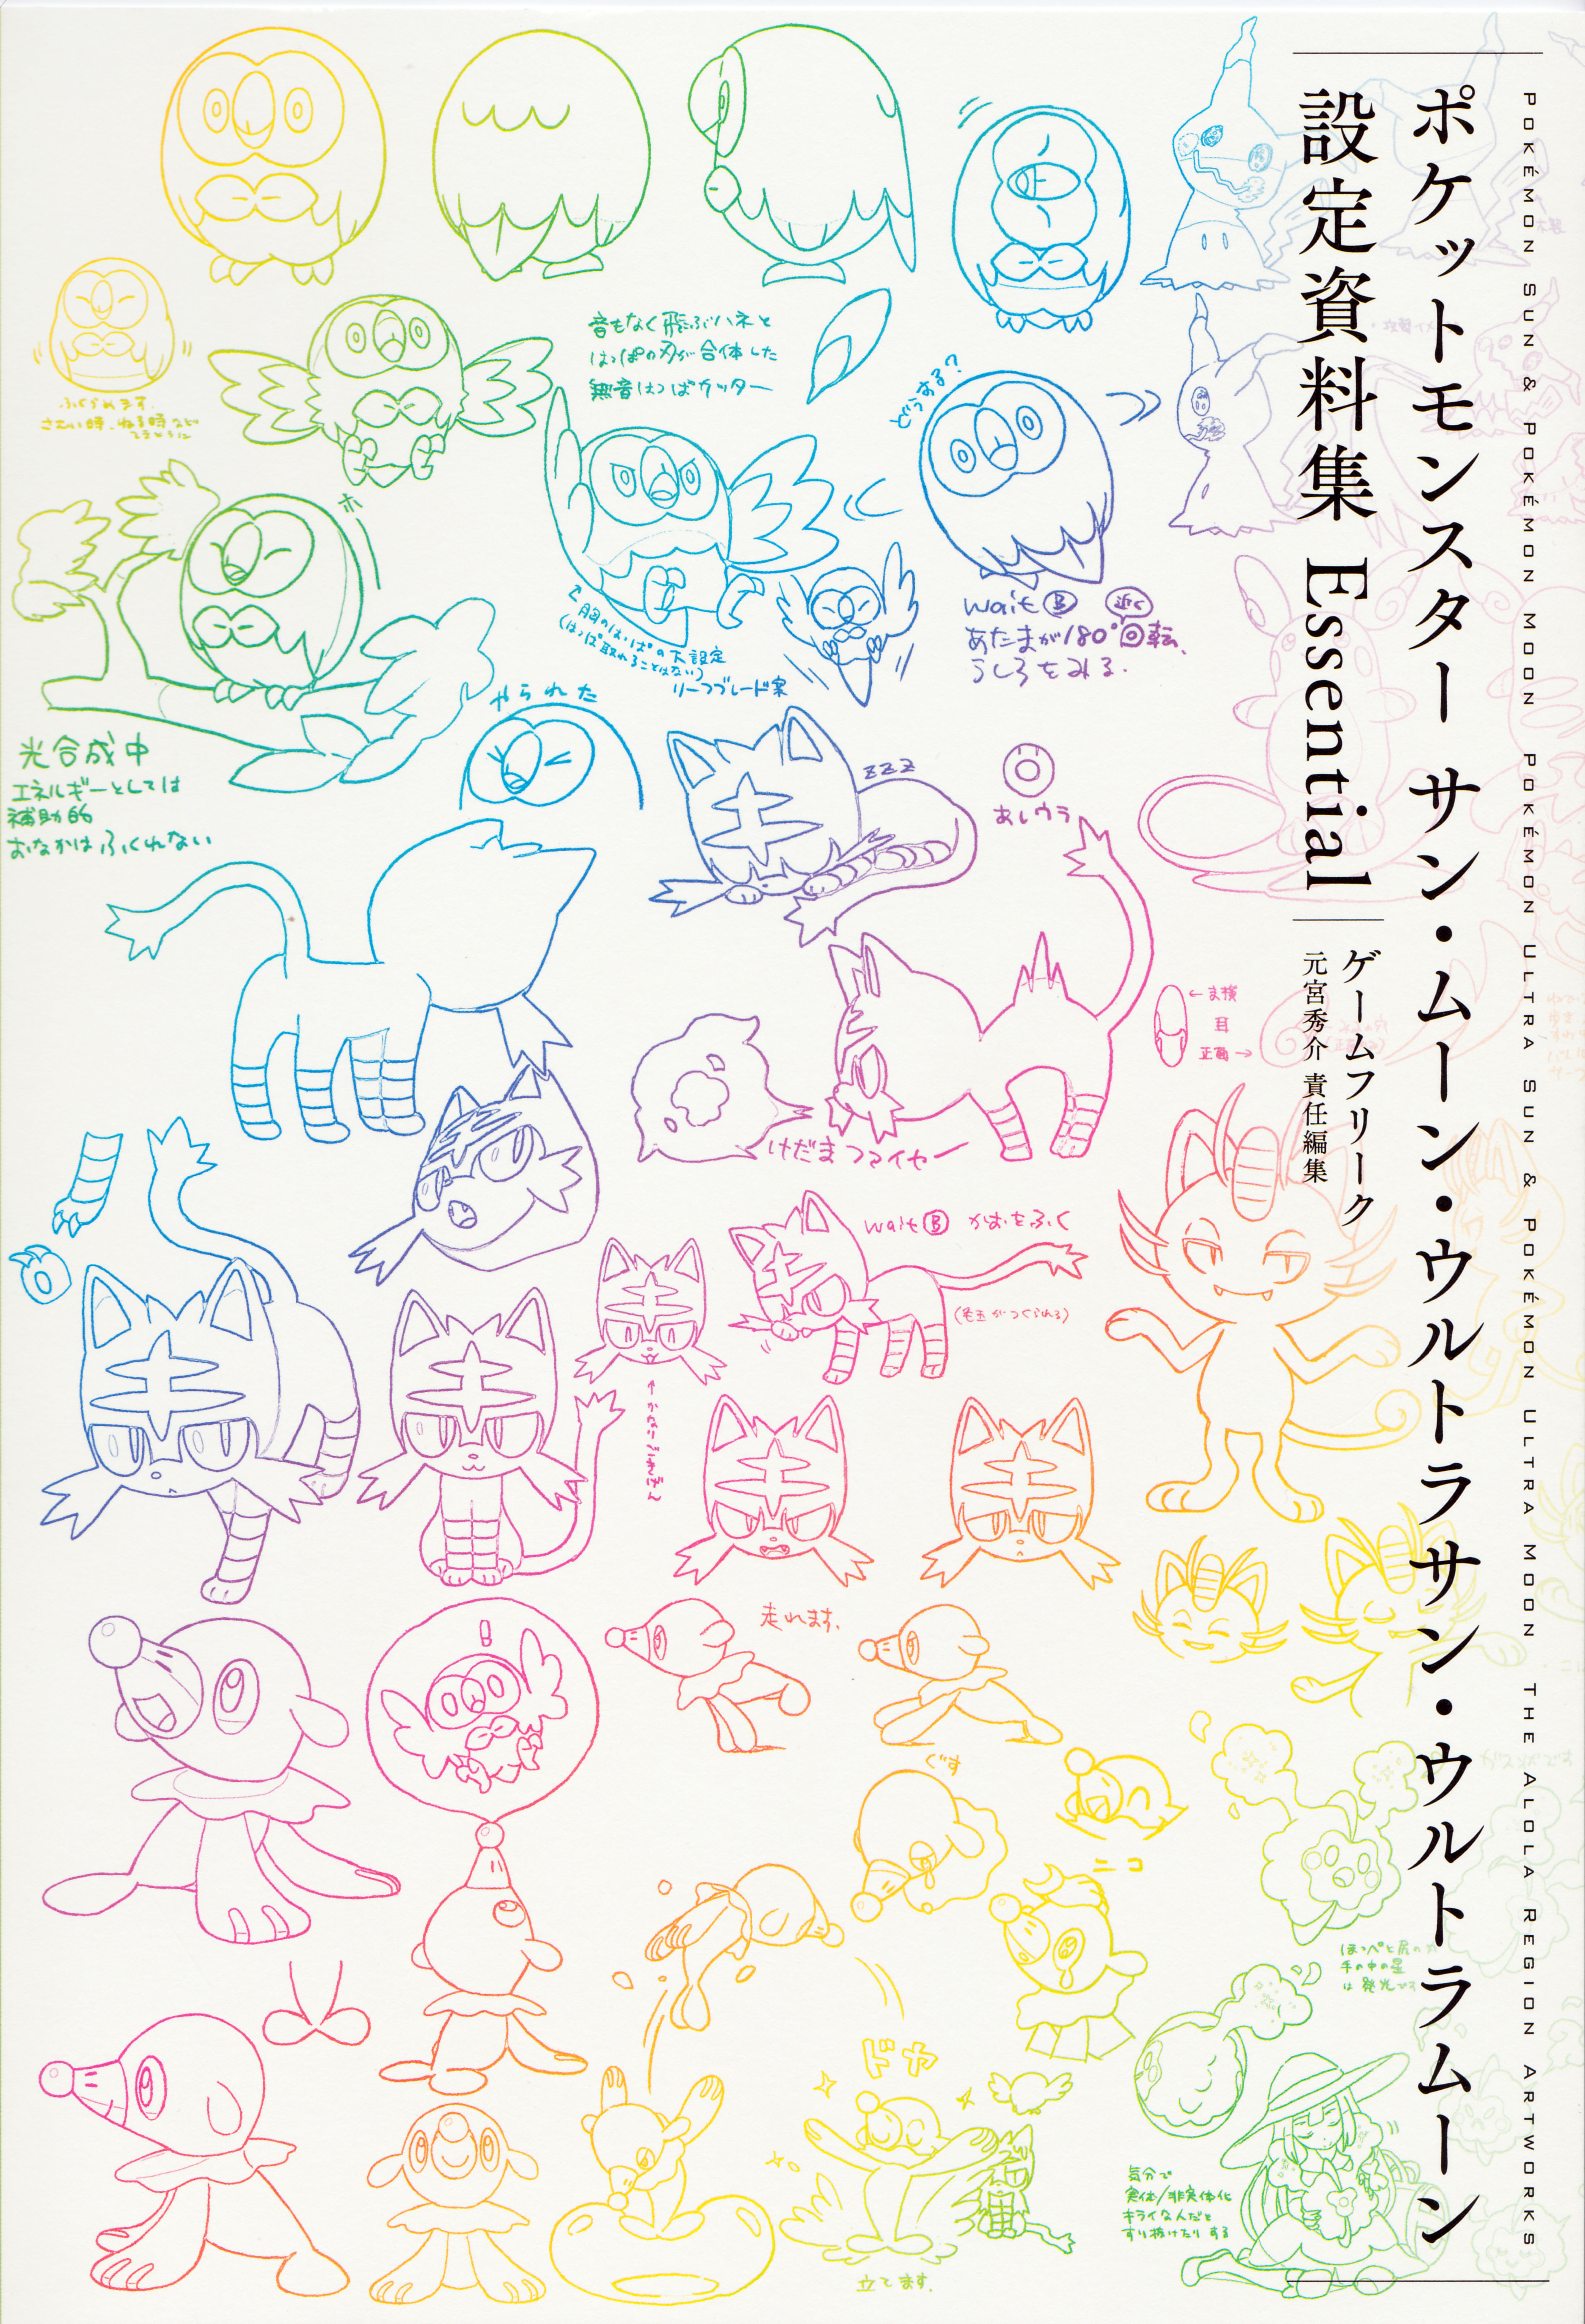 POKÉMON SUN & POKÉMON MOON POKÉMON ULTRA SUN & POKÉMON ULTRA MOON THE ALOLA REGION ARTWORKS
ポケットモンスター サン・ムーン・ウルトラサン・ウルトラムーン
設定資料集 Essential
ゲームフリーク
元宮秀介 責任編集
ふくらみます。
さむい時、ねる時など
音もなく飛ぶハネと
はっぱの刃が合体した
無音はっぱカッター
どうする?
ホ
胸のはっぱの下設定
(はっぱ取れることはない)
リーフブレード案
wait B 近く
あたまが180°回転、
うしろをみる.
やられた
光合成中
エネルギーとしては
補助的
おなかはふくれない
zzz
あしウラ
←ま横
耳
正面→
けだまファイヤー
wait B かおをふく
(毛玉がつくられる)
←かなりごきげん
!
走れます.
ぐす
ニコ
ほっぺと尻の
手の中の星
は発光
ドヤ
立てます.
気分で
実体/非実体化
キライな人だと
すり抜けたりする